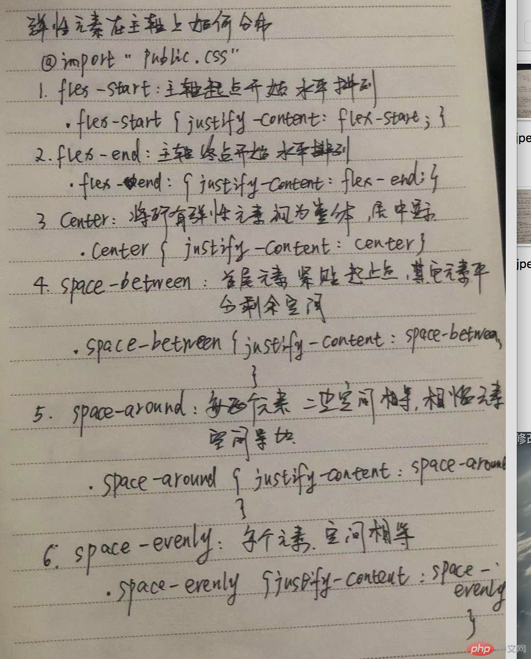 弹性元素在主轴上如何分布
@import "public.css"
1. flex-start：主轴起点开始 水平排列
.flex-start { justify-content: flex-start; }
2. flex-end：主轴终点开始 水平排列
.flex-end: { justify-content: flex-end; }
3 Center：将所有弹性元素视为整体，居中显示
.center { justify-content: center }
4. space-between：首尾元素 紧贴起止点，其它元素平
分剩余空间
.space-between { justify-content: space-between,
}
5. space-around：每个元素 二边空间相等，相邻元素
空间叠加
.space-around { justify-content: space-aroun
}
6. space-evenly：每个元素、空间相等
.space-evenly { justify-content: space-
evenly
}
jpe
jpe
修改
php 中文网